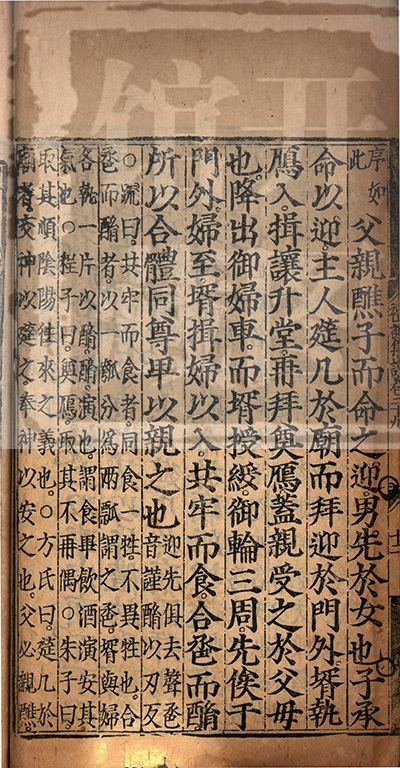 序如
此
父親醮子而命之迎男先於女也子承
命以迎主人筵几於廟而拜迎於門外壻執
鴈入揖讓升堂再拜奠鴈蓋親受之於父母
也降出御婦車而壻授綏御輪三周先俟于
門外婦至壻揖婦以入共牢而食合卺而酳
所以合體同尊卑以親之也
迎先俱去聲卺
音謹酳以刃反
○疏曰共牢而食者同食一牲不異牲也合
卺而酳者以一瓠分爲兩瓢謂之卺壻與婦
各執一片以酳酳演也謂食畢飲酒演安其
氣也○程子曰奠鴈取其不再偶○朱子曰
取其順陰陽往來之義也○方氏曰筵几於
廟者交神以筵之奉神以安之也父必親醮